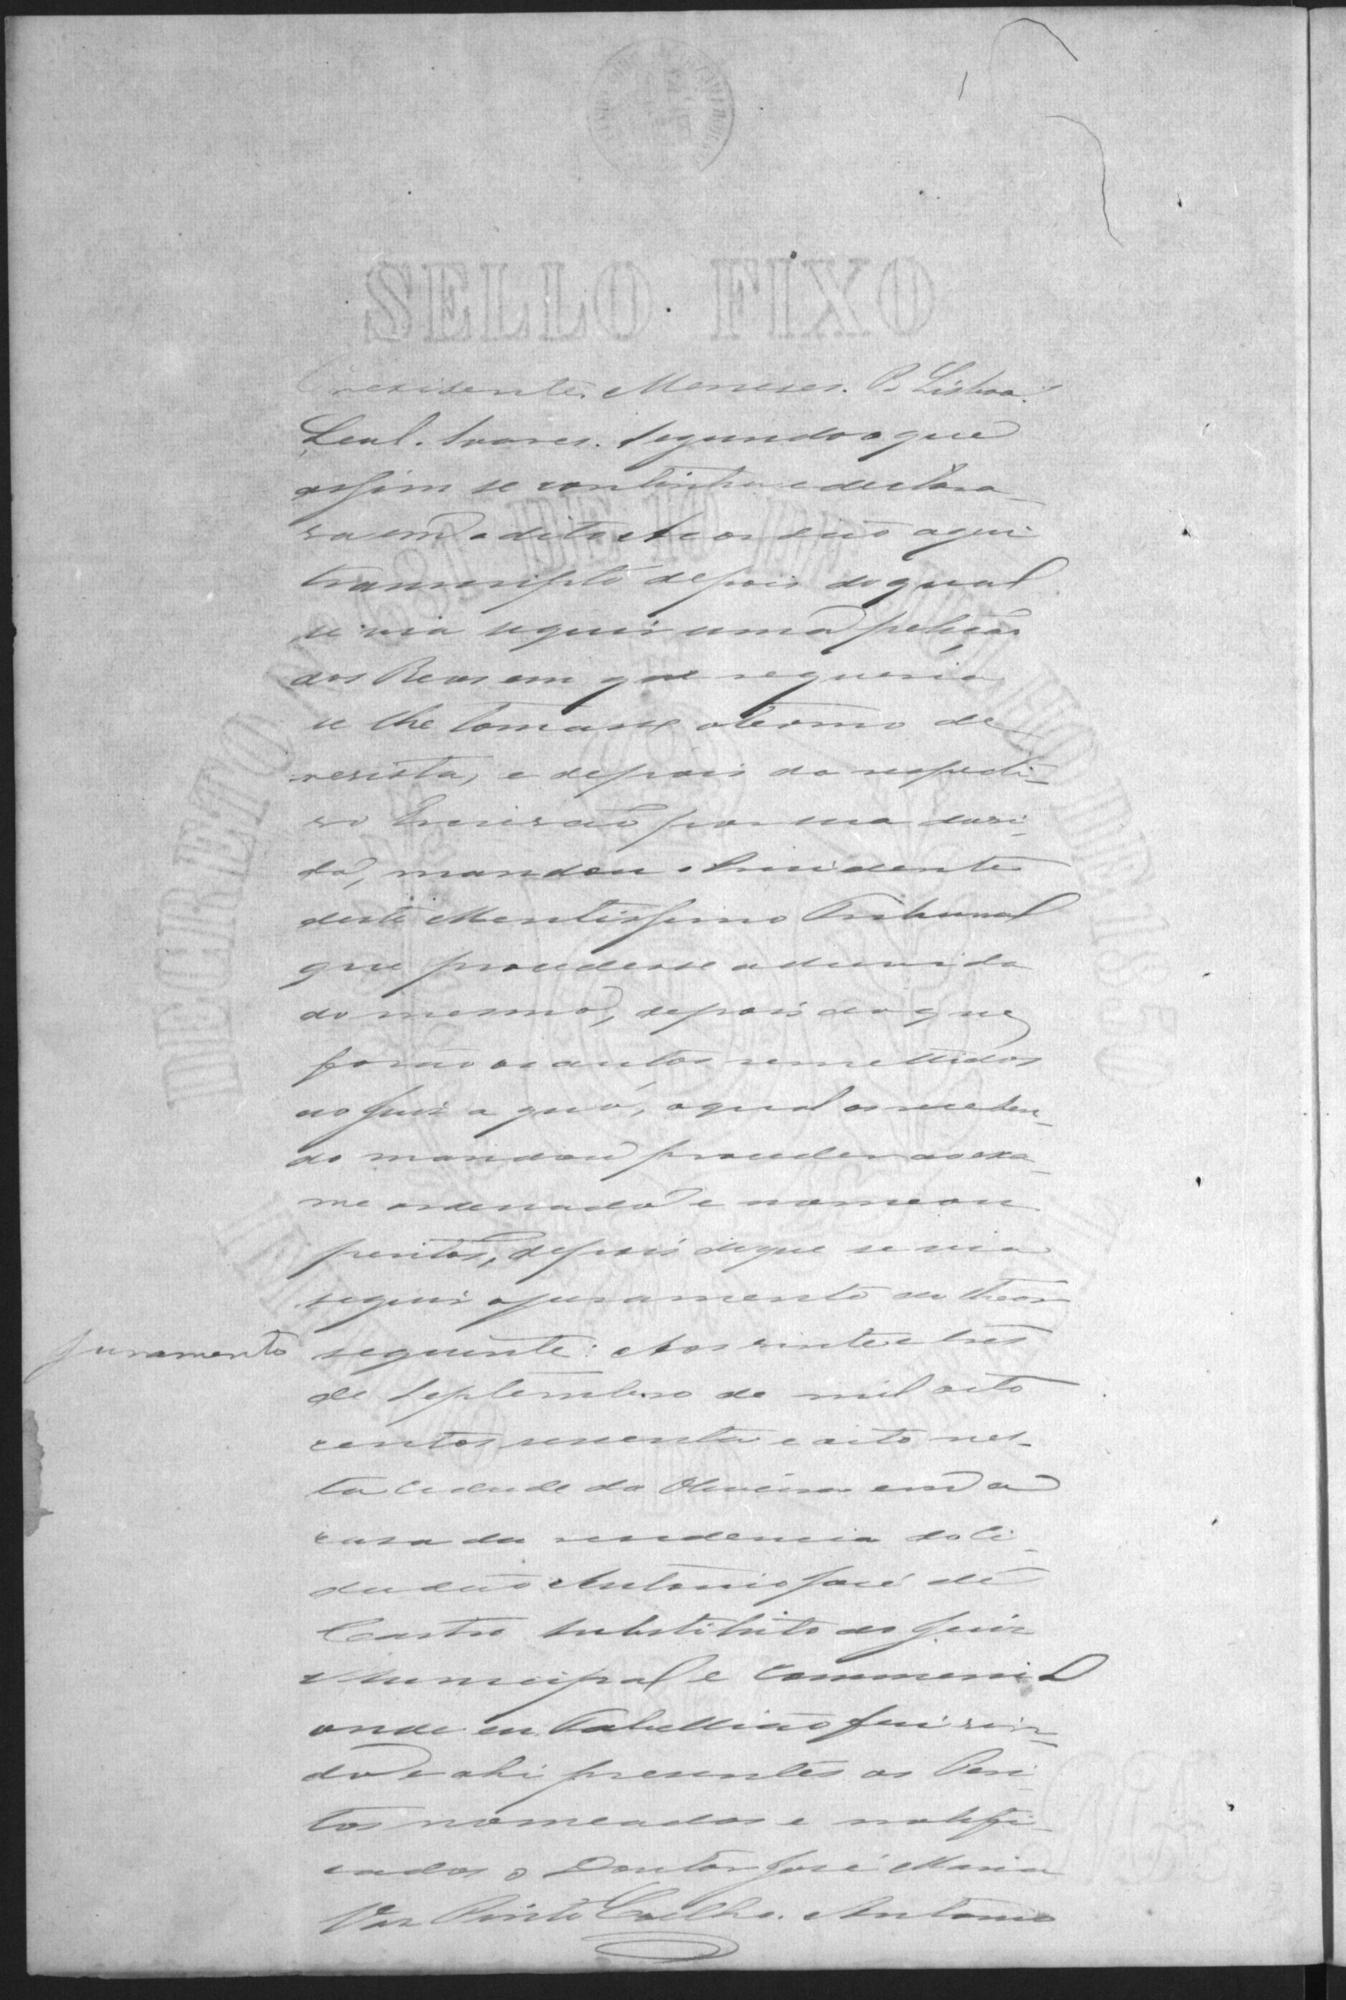 SELLO FIXO
DECRETO N. 681 DE 10 DE JULHO DE 1850
Presidente. Menezes. P. Lisboa.
Leal. Soares. Segundo o que
assim se continha e declara-
va em o dito Accordão aqui
transcripto depois do qual
se via seguir uma petição
dos Reos em que requeria
se lhe tomasse o termo de
revista, e depois do respecti-
vo
mandou o Presidente
deste Meritissimo Tribunal
que procedesse a
do mesmo, depois do que
forão os autos remettidos
ao Juiz a quo, o qual os receben-
do mandou proceder ao exa-
me ordenado e nomeou
peritos, depois de que se via
seguir o juramento do theor
Juramento
seguinte: Aos vinte e tres
de Septembro de mil oito
centos sessenta e oito nes-
ta Cidade da Oliveira em a
casa da residencia do Ci-
dadão Antonio José de
Castro substituto do Juiz
Municipal e Commercial
onde eu Tabellião fui vin-
do e ahi presentes os Peri-
tos nomeados e notifi-
cados o Doutor José Maria
Vaz Pinto Coelho. Antonio